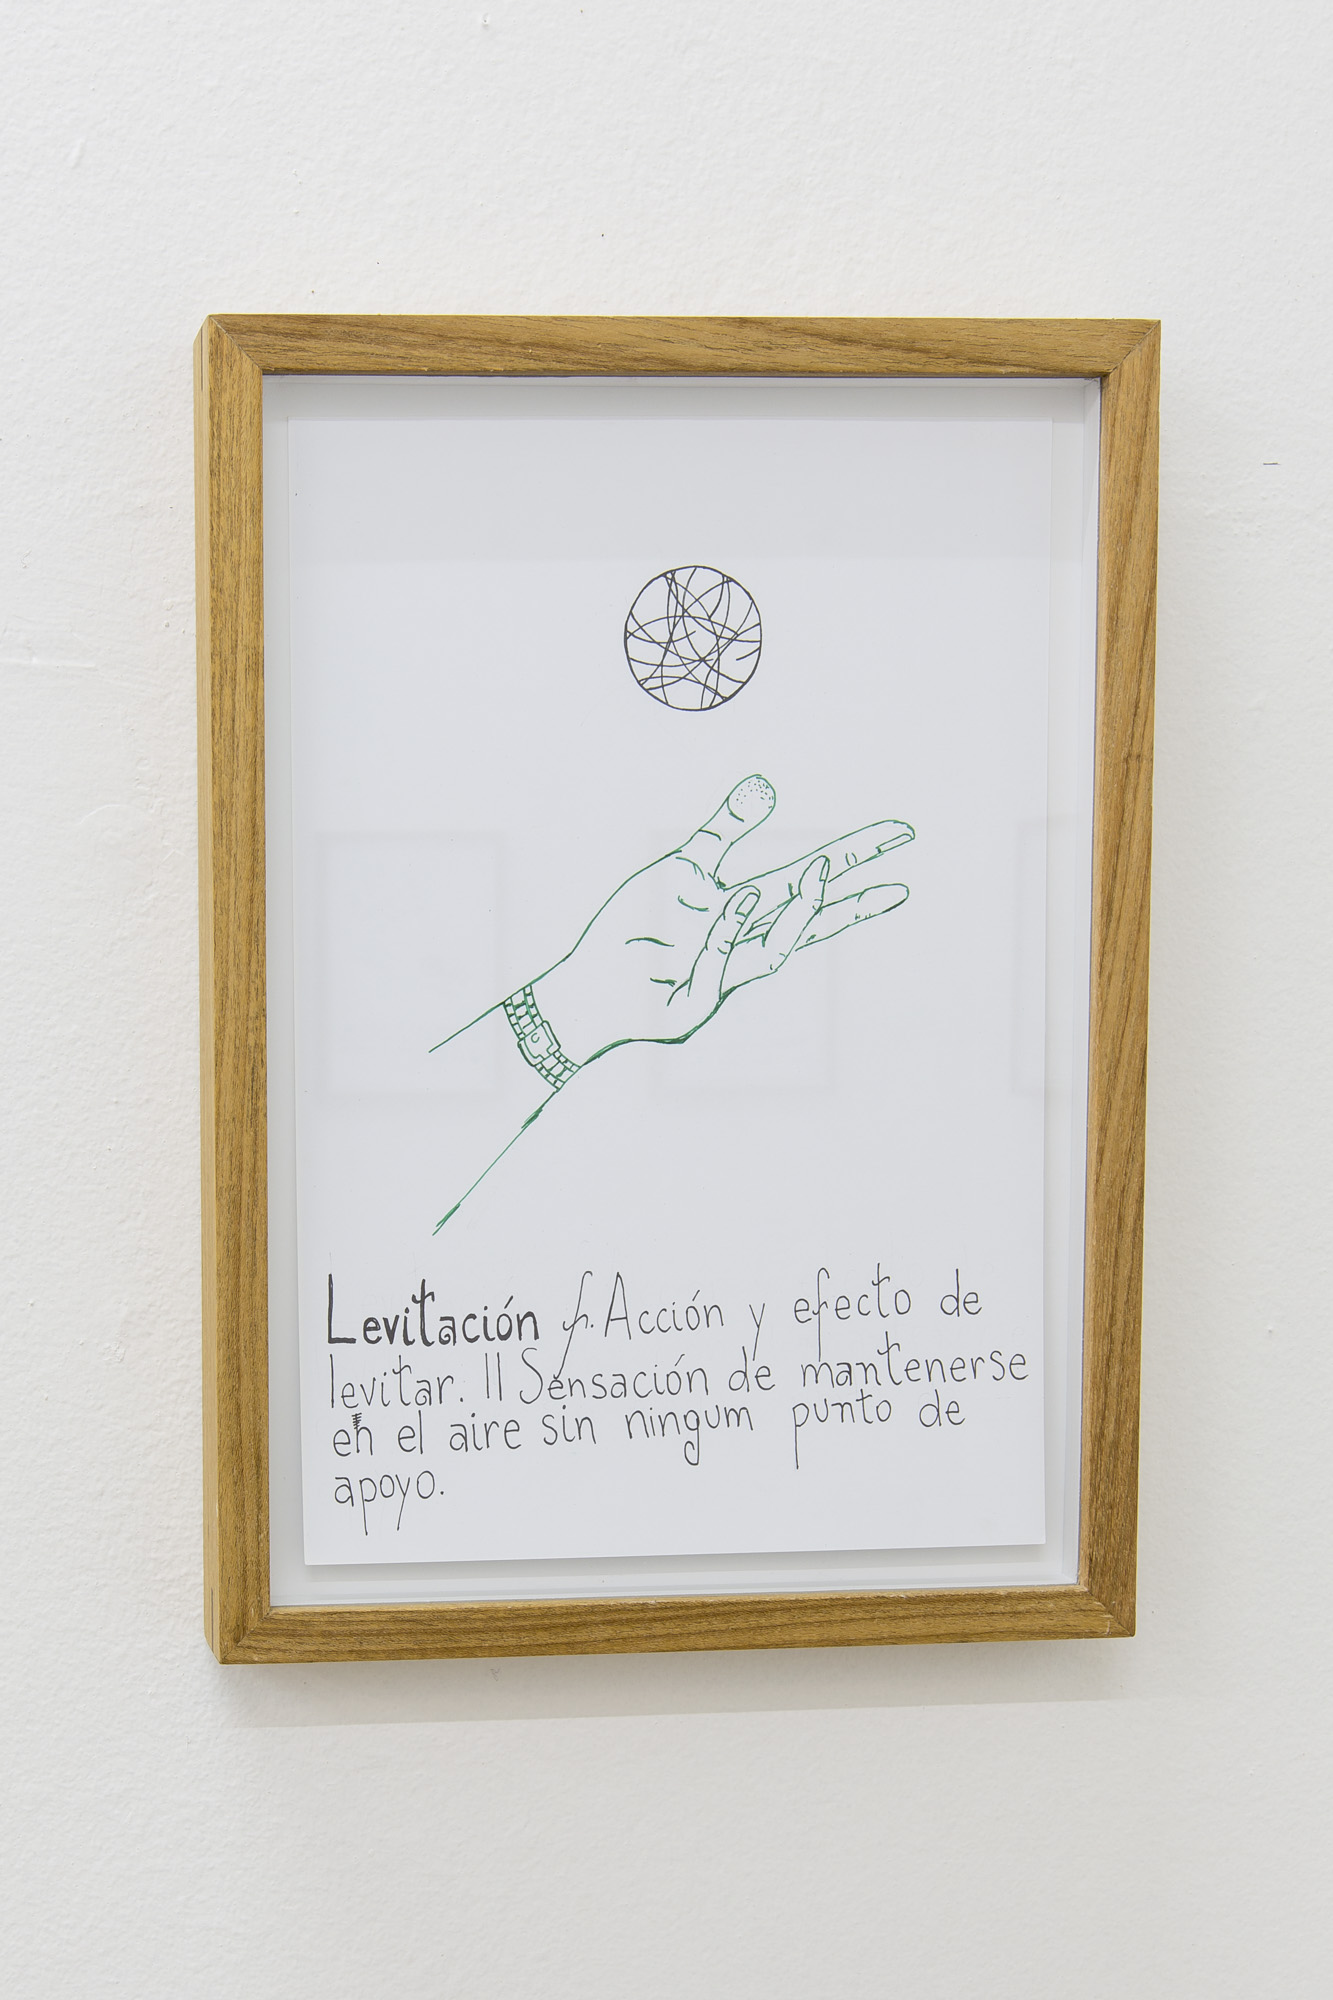 Levitación f. Acción y efecto de
levitar. || Sensación de mantenerse
en el aire sin ningum punto de
apoyo.